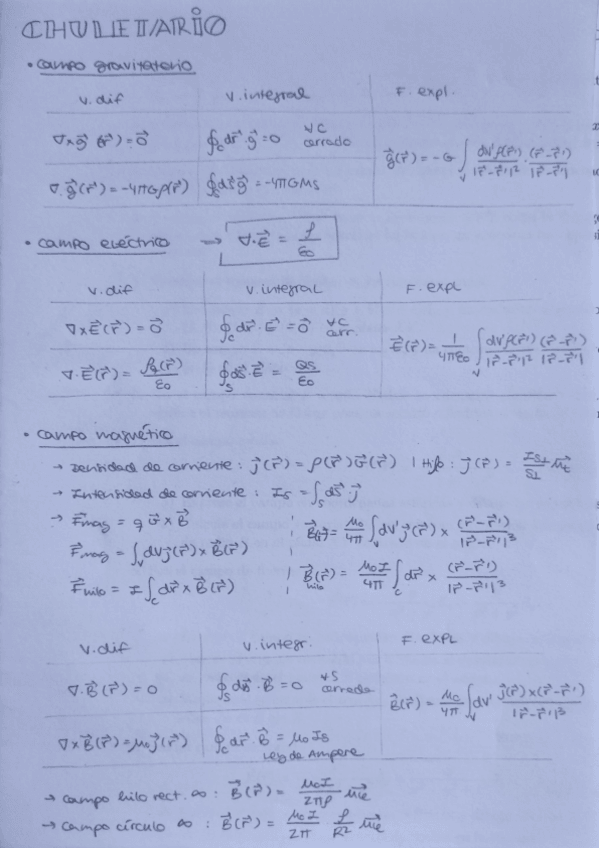 CHULETARIO
• campo gravitatorio
V. dif V. integral F. expl.
∇×g⃗(r⃗)=0⃗ ∮_C dr⃗·g⃗=0 ∀C cerrado
g⃗(r⃗)=-G ∫_V dV'ρ(r⃗')/|r⃗-r⃗'|² · (r⃗-r⃗')/|r⃗-r⃗'|
∇·g⃗(r⃗)=-4πGρ(r⃗) ∮_S ds⃗·g⃗=-4πGMs
• campo eléctrico → ∇·E⃗ = ρ/ε₀
V. dif V. integral F. expl
∇×E⃗(r⃗)=0⃗ ∮_C dr⃗·E⃗=0⃗ ∀C cerr.
E⃗(r⃗)= 1/4πε₀ ∫_V dV'ρ(r⃗')/|r⃗-r⃗'|² (r⃗-r⃗')/|r⃗-r⃗'|
∇·E⃗(r⃗)= ρq(r⃗)/ε₀ ∮_S ds⃗·E⃗= Qs/ε₀
• campo magnético
→ Densidad de corriente: j⃗(r⃗)=ρ(r⃗)v⃗(r⃗) | Hilo: j⃗(r⃗)= I_S⊥/S⊥ u⃗t
→ Intensidad de corriente: Is=∫_S ds⃗·j⃗
→ F⃗mag = q v⃗×B⃗ | B⃗(r⃗)= μ₀/4π ∫_V dV' j⃗(r⃗) × (r⃗-r⃗')/|r⃗-r⃗'|³
F⃗mag = ∫_V dV j⃗(r⃗)×B⃗(r⃗) |
F⃗hilo = I ∫_C dr⃗×B⃗(r⃗) | B⃗(r⃗) hilo = μ₀I/4π ∫_C dr⃗ × (r⃗-r⃗')/|r⃗-r⃗'|³
V. dif V. integr. F. expl
∇·B⃗(r⃗)=0 ∮_S ds⃗·B⃗=0 ∀S cerrada
B⃗(r⃗)= μ₀/4π ∫_V dV' j⃗(r⃗)×(r⃗-r⃗')/|r⃗-r⃗'|³
∇×B⃗(r⃗)=μ₀j⃗(r⃗) ∮_C dr⃗·B⃗ = μ₀Is
Ley de Ampere
→ campo hilo rect. ∞: B⃗(r⃗)= μ₀I/2πρ u⃗φ
→ campo círculo ∞: B⃗(r⃗)= μ₀I/2π ρ/R² u⃗φ